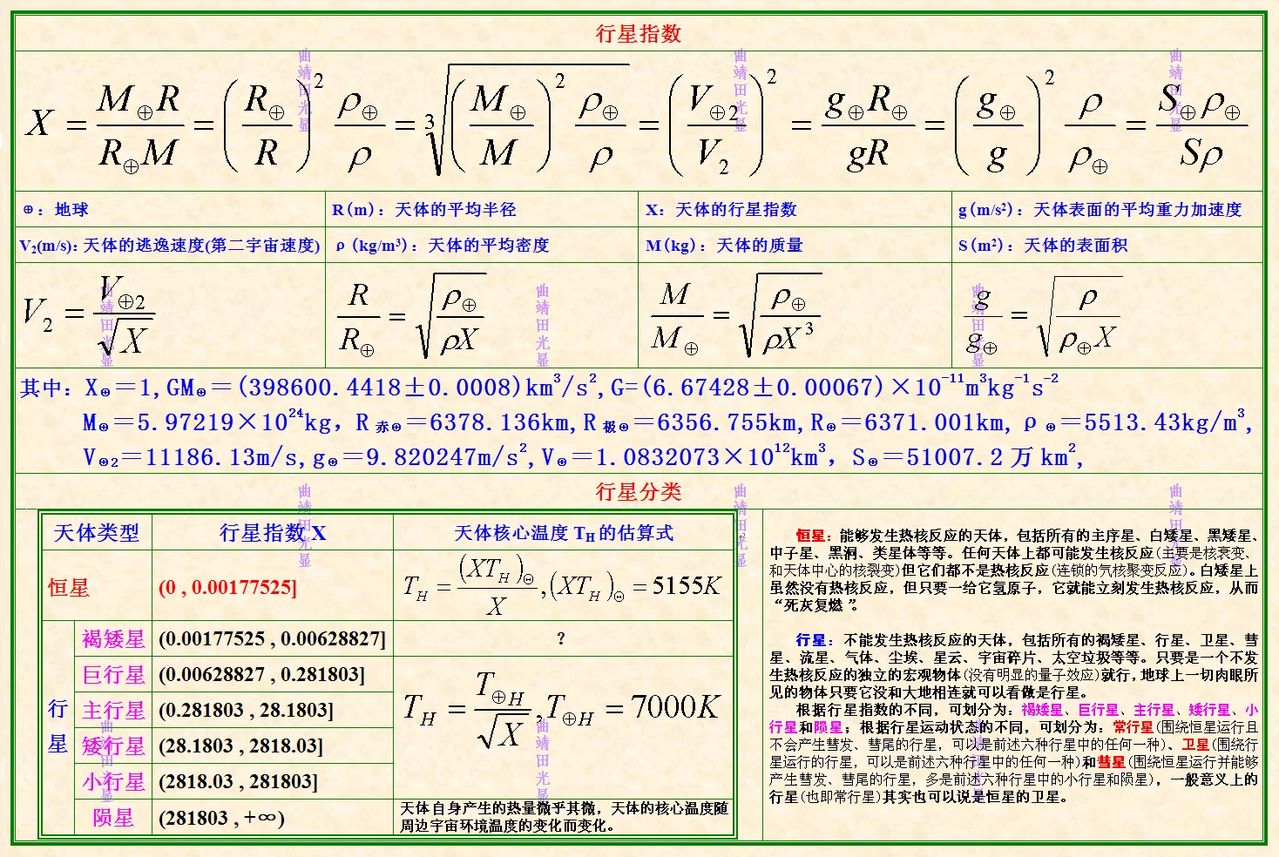 行星指数
X = M⊕R / R⊕M = (R⊕/R)² ρ⊕/ρ = ³√((M⊕/M)² ρ⊕/ρ) = (V⊕2/V2)² = g⊕R⊕/gR = (g⊕/g)² ρ/ρ⊕ = S⊕ρ⊕/Sρ
⊕: 地球
R(m): 天体的平均半径
X: 天体的行星指数
g(m/s²): 天体表面的平均重力加速度
V2(m/s): 天体的逃逸速度(第二宇宙速度)
ρ(kg/m³): 天体的平均密度
M(kg): 天体的质量
S(m²): 天体的表面积
V2 = V⊕2/√X
R/R⊕ = √(ρ⊕/ρX)
M/M⊕ = √(ρ⊕/ρX³)
g/g⊕ = √(ρ/ρ⊕X)
其中: X⊕=1,GM⊕=(398600.4418±0.0008)km³/s²,G=(6.67428±0.00067)×10⁻¹¹m³kg⁻¹s⁻²
M⊕=5.97219×10²⁴kg, R赤⊕=6378.136km,R极⊕=6356.755km,R⊕=6371.001km, ρ⊕=5513.43kg/m³,
V⊕2=11186.13m/s,g⊕=9.820247m/s²,V⊕=1.0832073×10¹²km³, S⊕=51007.2万km²,
行星分类
天体类型 行星指数 X 天体核心温度 TH 的估算式
恒星 (0 , 0.00177525] TH = (XTH)⊙/X ,(XTH)⊙ = 5155K
行星
褐矮星 (0.00177525 , 0.00628827] ?
巨行星 (0.00628827 , 0.281803]
主行星 (0.281803 , 28.1803]
矮行星 (28.1803 , 2818.03]
小行星 (2818.03 , 281803]
TH = T⊕H/√X ,T⊕H = 7000K
陨星 (281803 , +∞)
天体自身产生的热量微乎其微，天体的核心温度随
周边宇宙环境温度的变化而变化。
恒星：能够发生热核反应的天体，包括所有的主序星、白矮星、黑矮星、
中子星、黑洞、类星体等等。任何天体上都可能发生核反应(主要是核衰变、
和天体中心的核裂变)但它们都不是热核反应(连锁的气核聚变反应)。白矮星上
虽然没有热核反应，但只要一给它氢原子，它就能立刻发生热核反应，从而
“死灰复燃”。
行星：不能发生热核反应的天体，包括所有的褐矮星、行星、卫星、彗
星、流星、气体、尘埃、星云、宇宙碎片、太空垃圾等等。只要是一个不发
生热核反应的独立的宏观物体(没有明显的量子效应)就行，地球上一切肉眼所
见的物体只要它没和大地相连就可以看做是行星。
根据行星指数的不同，可划分为：褐矮星、巨行星、主行星、矮行星、小
行星和陨星；根据行星运动状态的不同，可划分为：常行星(围绕恒星运行且
不会产生彗发、彗尾的行星，可以是前述六种行星中的任何一种)、卫星(围绕行
星运行的行星，可以是前述六种行星中的任何一种)和彗星(围绕恒星运行并能够
产生彗发、彗尾的行星，多是前述六种行星中的小行星和陨星)，一般意义上的
行星(也即常行星)其实也可以说是恒星的卫星。
曲靖田光显
曲靖田光显
曲靖田光显
曲靖田光显
曲靖田光显
曲靖田光显
曲靖田光显
曲靖田光显
曲靖田光显
曲靖田光显
曲靖田光显
曲靖田光显